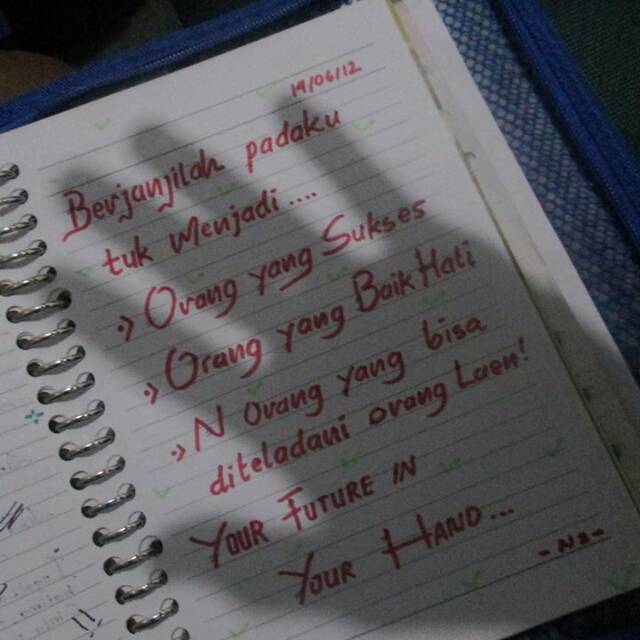 19/06/12
Berjanjilah padaku
tuk Menjadi....
Orang yang Sukses
Orang yang Baik Hati
N Orang yang bisa
diteladani orang Laen!
YOUR FUTURE IN
YOUR HAND...